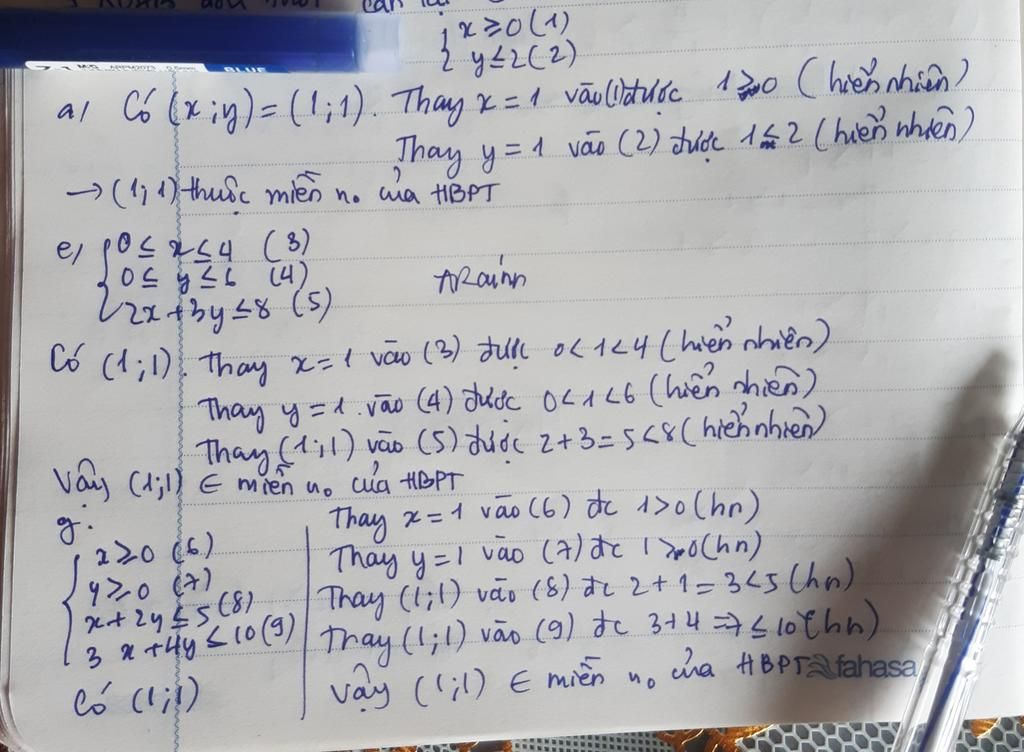 cần
{ x ≥ 0 (1)
y ≤ 2 (2)
BLUE
a/ Có (x ; y) = (1 ; 1). Thay x = 1 vào (1) được 1 ≥ 0 (hiển nhiên)
Thay y = 1 vào (2) được 1 ≤ 2 (hiển nhiên)
→ (1 ; 1) thuộc miền n₀ của HBPT
e/ { 0 ≤ x ≤ 4 (3)
0 ≤ y ≤ 6 (4)
2x + 3y ≤ 8 (5)
Có (1 ; 1). Thay x = 1 vào (3) được 0 < 1 < 4 (hiển nhiên)
Thay y = 1 vào (4) được 0 < 1 < 6 (hiển nhiên)
Thay (1 ; 1) vào (5) được 2 + 3 = 5 < 8 (hiển nhiên)
Vậy (1 ; 1) ∈ miền n₀ của HBPT
g.
{ x ≥ 0 (6)
y ≥ 0 (7)
x + 2y ≤ 5 (8)
3x + 4y ≤ 10 (9)
Có (1 ; 1)
Thay x = 1 vào (6) đc 1 > 0 (hn)
Thay y = 1 vào (7) đc 1 > 0 (hn)
Thay (1 ; 1) vào (8) đc 2 + 1 = 3 < 5 (hn)
Thay (1 ; 1) vào (9) đc 3 + 4 = 7 ≤ 10 (hn)
Vậy (1 ; 1) ∈ miền n₀ của HBPT
fahasa